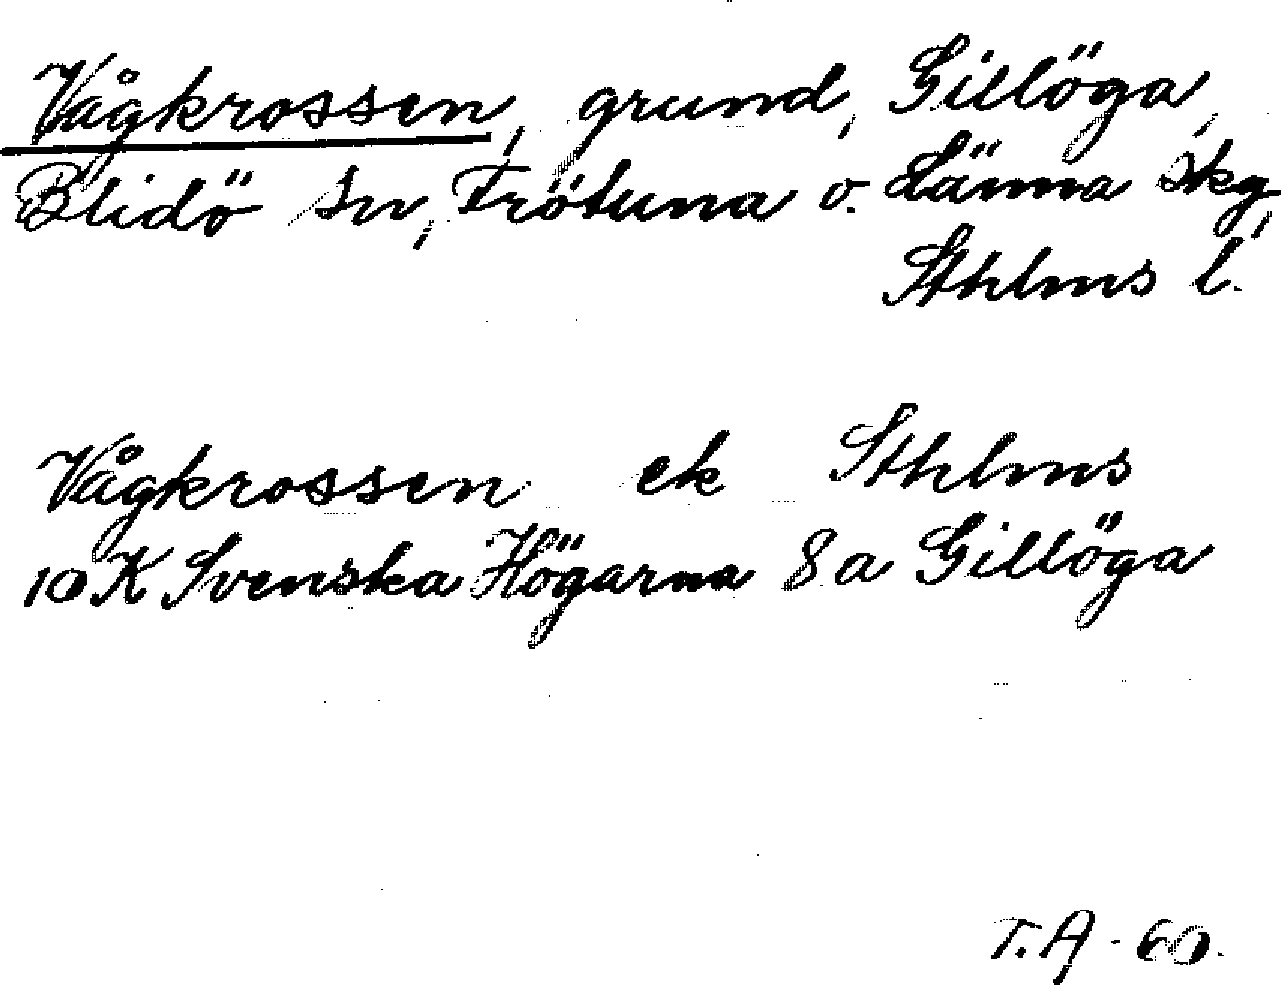 Vågkrossen, grund, Gillöga,
Blidö sn, Frötuna o. Länna skg,
Sthlms l.
Vågkrossen ek Sthlms
10 K Svenska Högarna 8 a Gillöga
T. A - 60.